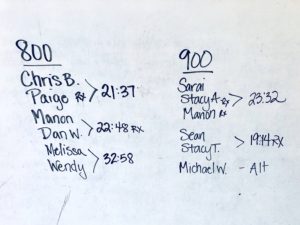 800
Chris B.
Paige Rx > 21:37
Manon
Dan W. > 22:48 Rx
Melissa
Wendy > 32:58
900
Sarai
Stacy A. Rx > 23:32
Manon Rx
Sean
Stacy T. > 19:14 Rx
Michael W. - Alt